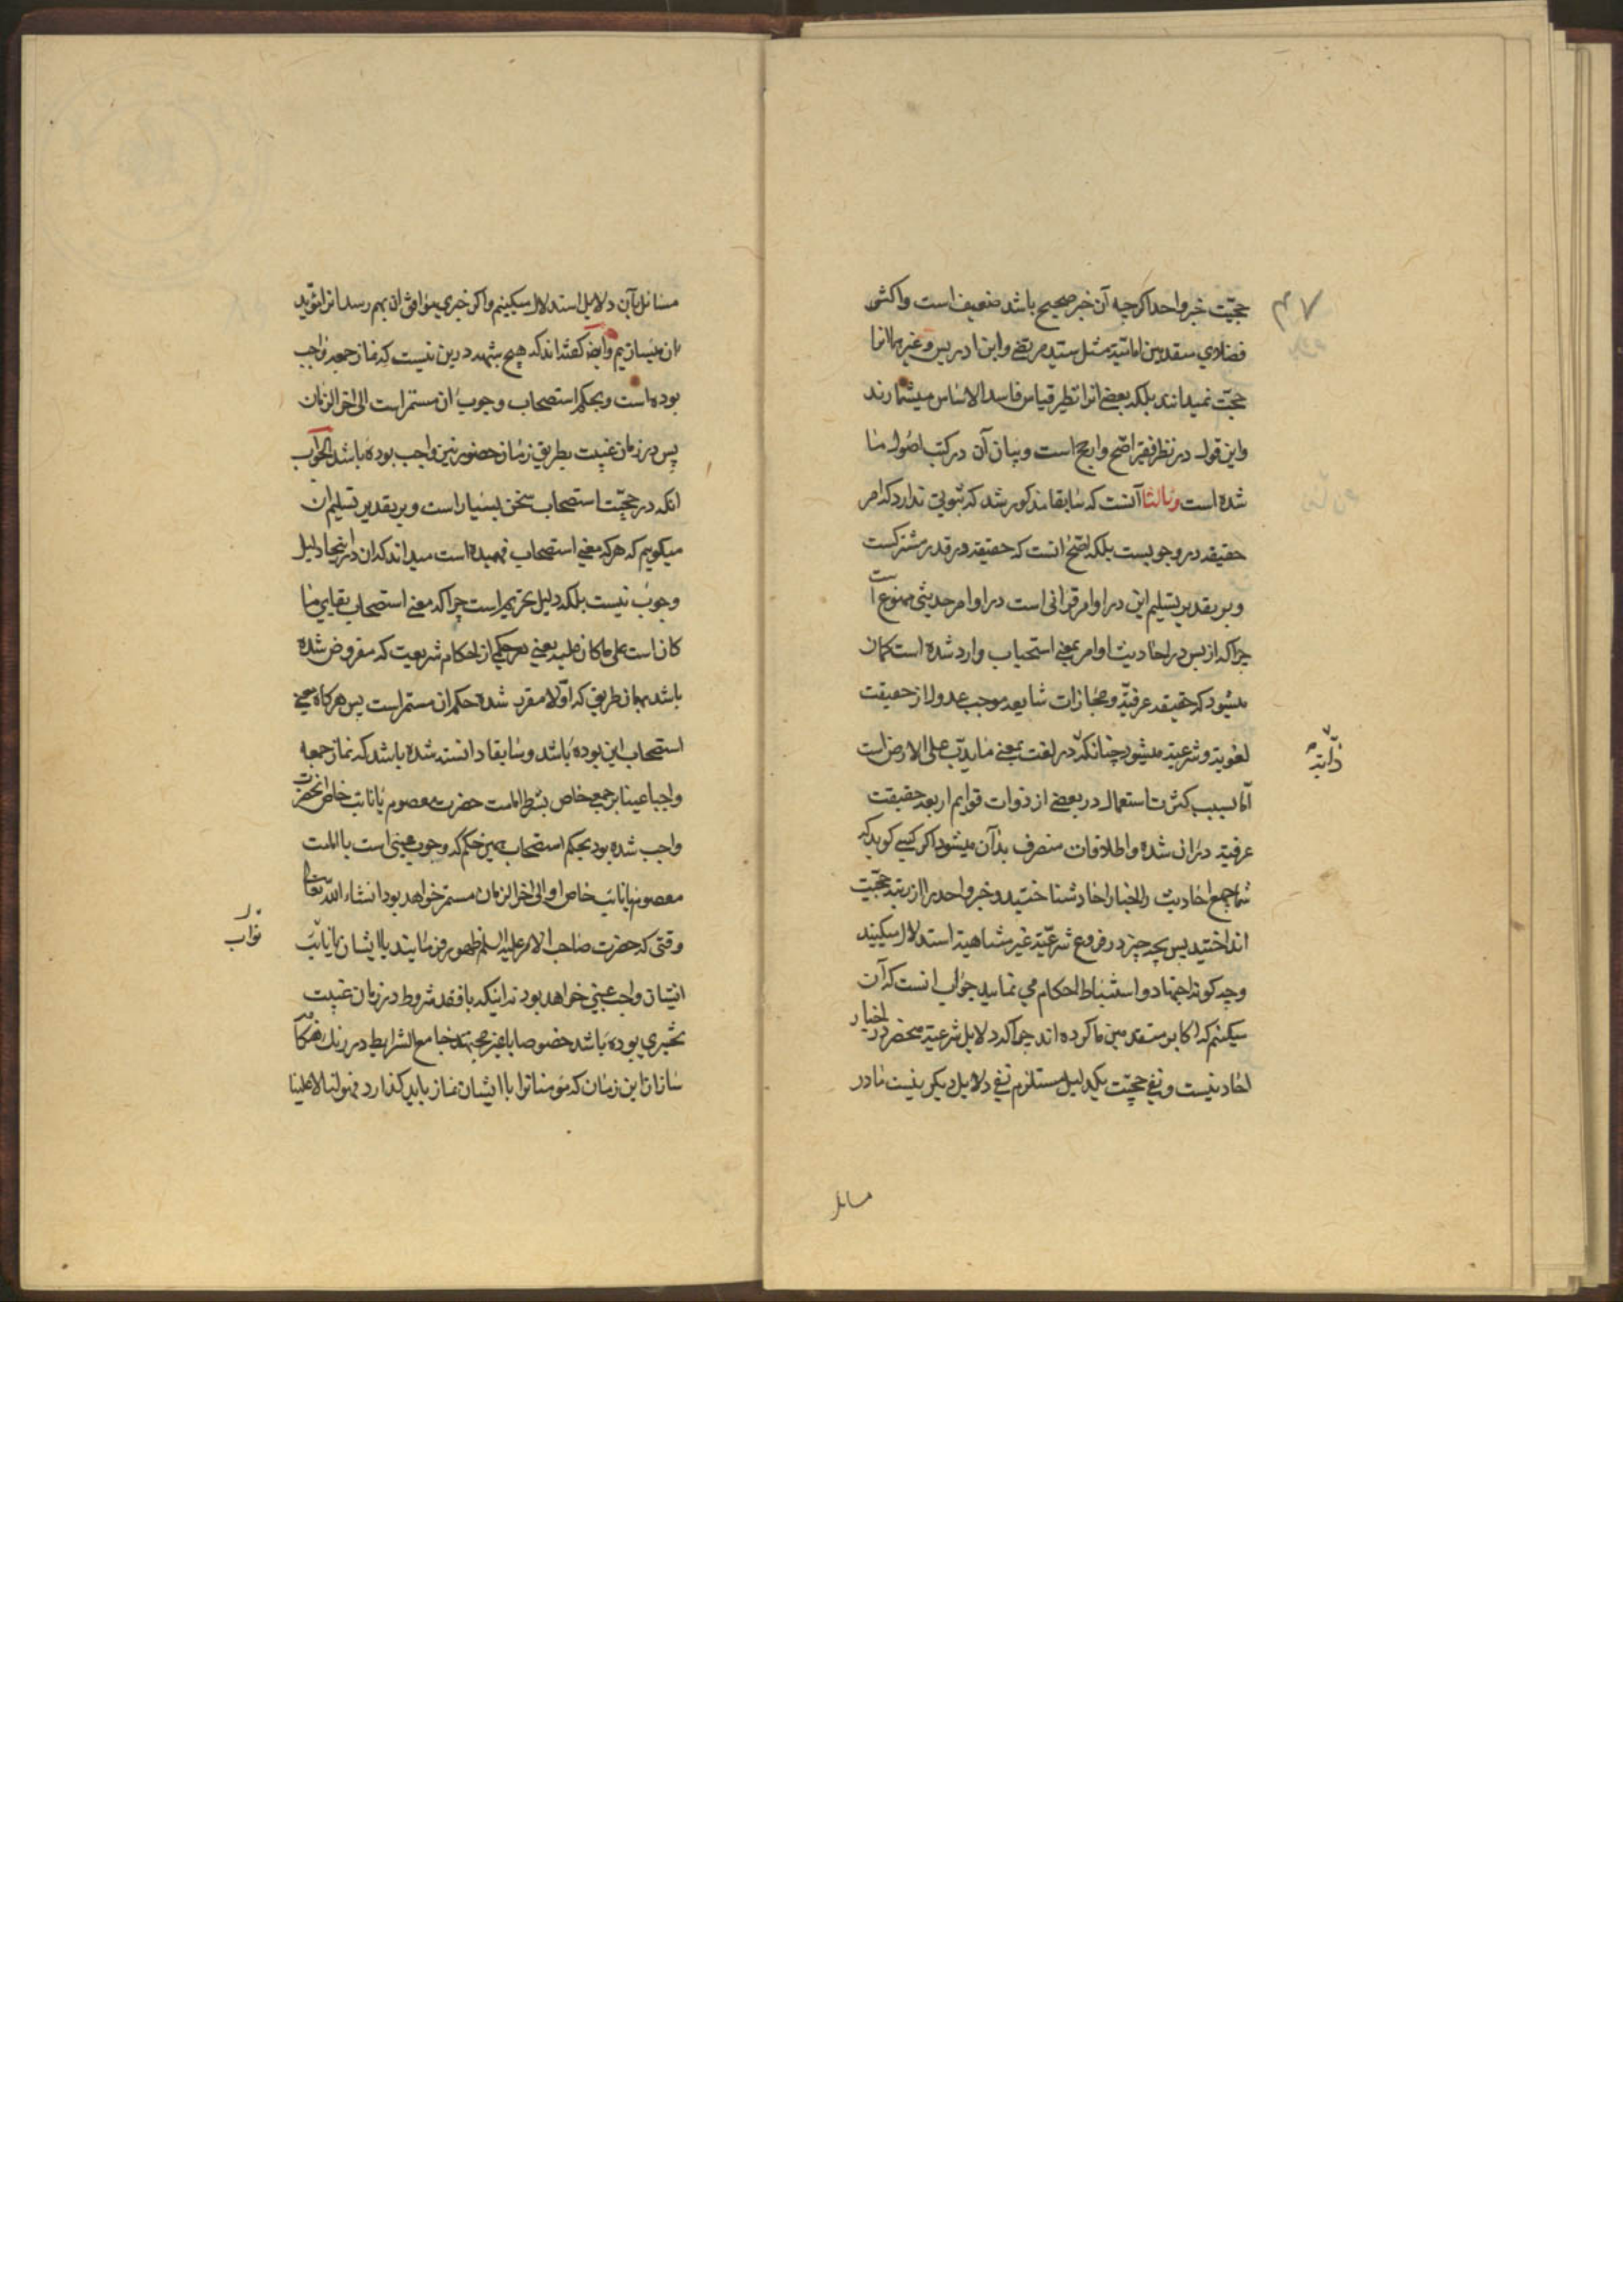 حجیّت خبر واحد اکرچه آن خبر صحیح باشد ضعیف است واکثر
فضلای متقدمین امامیّه مثل سیّد مرتضی وابن ادریس وغیرهما انرا
حجّت نمیدانند بلکه بعضی انرا نظیر قیاس فاسد الاساس میشمارند
واین قول در نظر فقیر اصّح وارجح است وبیان آن در کتب اصول ما
شده است وثالثا آنست که سابقا مذکور شد که ثبوتی ندارد که امر
حقیقه در وجوبست بلکه اصّح انست که حقیقه در قدر مشترکست
وبر تقدیر تسلیم این در اوامر قرانی است در اوامر حدیثی ممنوع است
چراکه از بس در احادیث اوامر بمعنی استحباب وارد شده است کمان
میشود که حقیقه عرفیّه ومجازات شایعه موجب عدول از حقیقت
لغویّه وشرعیّه میشود چنانکه در لغت بمعنی ما یدّب علی الارض است
دآبّه
امّا بسبب کثرت استعمال در بعضی از ذوات قوایم اربعه حقیقت
عرفیّه در ان شده واطلاقات منصرف بدآن میشود اکر کسی کوید که
شما جمیع احادیث واخبار احاد شناختید وخبر واحد را از رتبه حجیّت
انداختید پس بچه چیز در فروع شرعیّه غیر متناهیه استدلال میکنید
وچه کونه اجتهاد واستنباط احکام می نمایید جواب انست که آن
میکنیم که اکابر متقدمین ما کرده اند چراکه دلایل شرعیّه منحصر در اخبار
احاد نیست ونفی حجیّت یکدلیل مستلزم نفی دلایل دیکر نیست ما در
مسائل
مسائل بآن دلایل استدلال میکنیم واکر خبری موافق ان بهم رسد انرا مؤیّد
ان میسازیم وایضا کفته اند که هیچ شبهه درین نیست که نماز جمعه واجب
بوده است وبحکم استصحاب وجوب ان مستمر است الی اخر الزمان
پس در زمان غیبت بطریق زمان حضور نیز واجب بوده باشد الجواب
انکه در حجیّت استصحاب سخن بسیار است وبر تقدیر تسلیم ان
میکوییم که هرکه معنی استصحاب فهمیده است میداند که ان در اینجا دلیل
وجوب نیست بلکه دلیل تحریم است چراکه معنی استصحاب بقای ما
کان است علی ما کان علیه یعنی هر حکمی از احکام شریعت که مفروض شده
باشد بهمان طریق که اوّلا مقرر شده حکم ان مستمر است پس هرکاه معنی
استصحاب این بوده باشد وسابقا دانسته شده باشد که نماز جمعه
واجبا عینا بر جمعی خاص بشرط امامت حضرت معصوم یا نایب خاص انحضرت
واجب شده بود بحکم استصحاب همین حکم که وجوب عینی است با امامت
معصوم یا نایب خاص او الی اخر الزمان مستمر خواهد بود انشاء الله تعالی
وقتی که حضرت صاحب الامر علیه السلم ظهور فرمایند با ایشان یا نایب
نوّاب
ایشان واجب عینی خواهد بود نه اینکه با فقد شروط در زمان غیبت
تخییری بوده باشد خصوصا با غیر مجتهد جامع الشرایط
سازان این زمان که مومنانرا با ایشان نماز باید کذارد